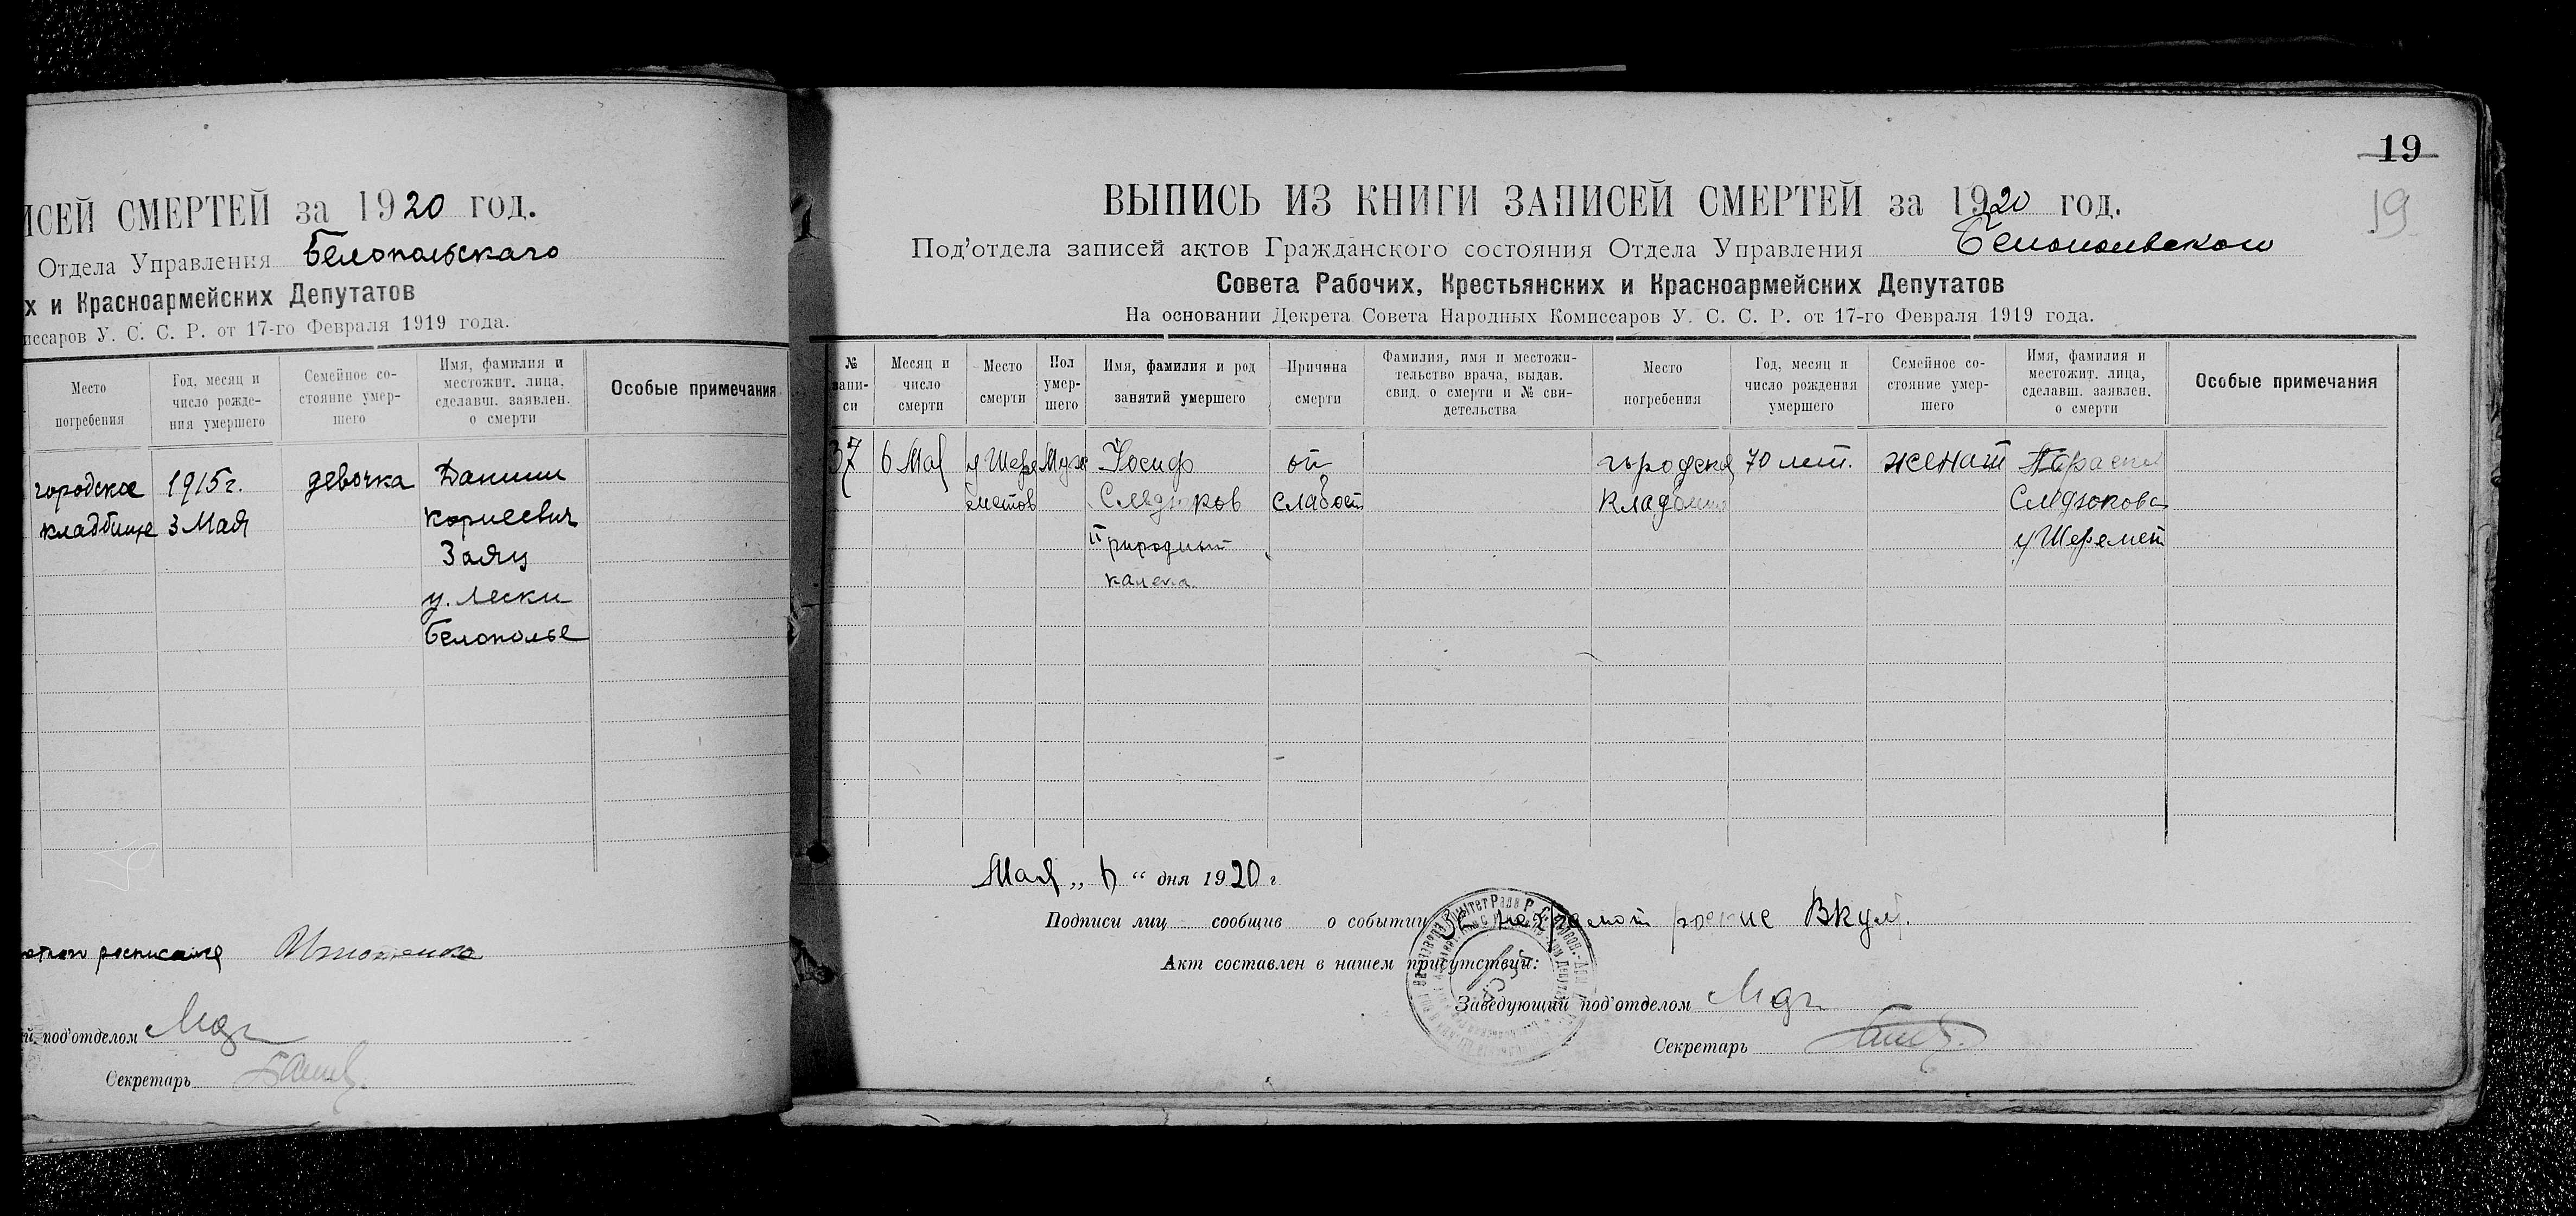 ИСЕЙ СМЕРТЕЙ за 1920 год.
Отдела Управления Белопольскаго
х и Красноармейских Депутатов
иссаров У. С. С. Р. от 17-го Февраля 1919 года.
Место погребения
Год, месяц и число рожде-ния умершего
Семейное со-стояние умер-шего
Имя, фамилия и местожит. лица, сделавш. заявлен. о смерти
Особые примечания
городское 1915г. девочка Даниил
кладбище 3 Мая Корнеевич
Заяц
у. Лески
Белополье
й под'отделом
Секретарь
19
19
ВЫПИСЬ ИЗ КНИГИ ЗАПИСЕЙ СМЕРТЕЙ за 1920 год.
Под'отдела записей актов Гражданского состояния Отдела Управления Белопольского
Совета Рабочих, Крестьянских и Красноармейских Депутатов
На основании Декрета Совета Народных Комиссаров У. С. С. Р. от 17-го Февраля 1919 года.
№ запи-си
Месяц и число смерти
Место смерти
Пол умер-шего
Имя, фамилия и род занятий умершего
Причина смерти
Фамилия, имя и местожи-тельство врача, выдав. свид. о смерти и № сви-детельства
Место погребения
Год, месяц и число рождения умершего
Семейное со-стояние умер-шего
Имя, фамилия и местожит. лица, сделавш. заявлен. о смерти
Особые примечания
37 6 Мая у Шере Муж Иосиф от городское 70 лет. женат
метов Следюков слабост кладбище Следюкова
Природный у Шеремет
калека
Мая „ 6 “ дня 1920 г
Подписи лиц сообщив о событии За неграмот
Акт составлен в нашем присутствии:
Заведующий под'отделом
Секретарь